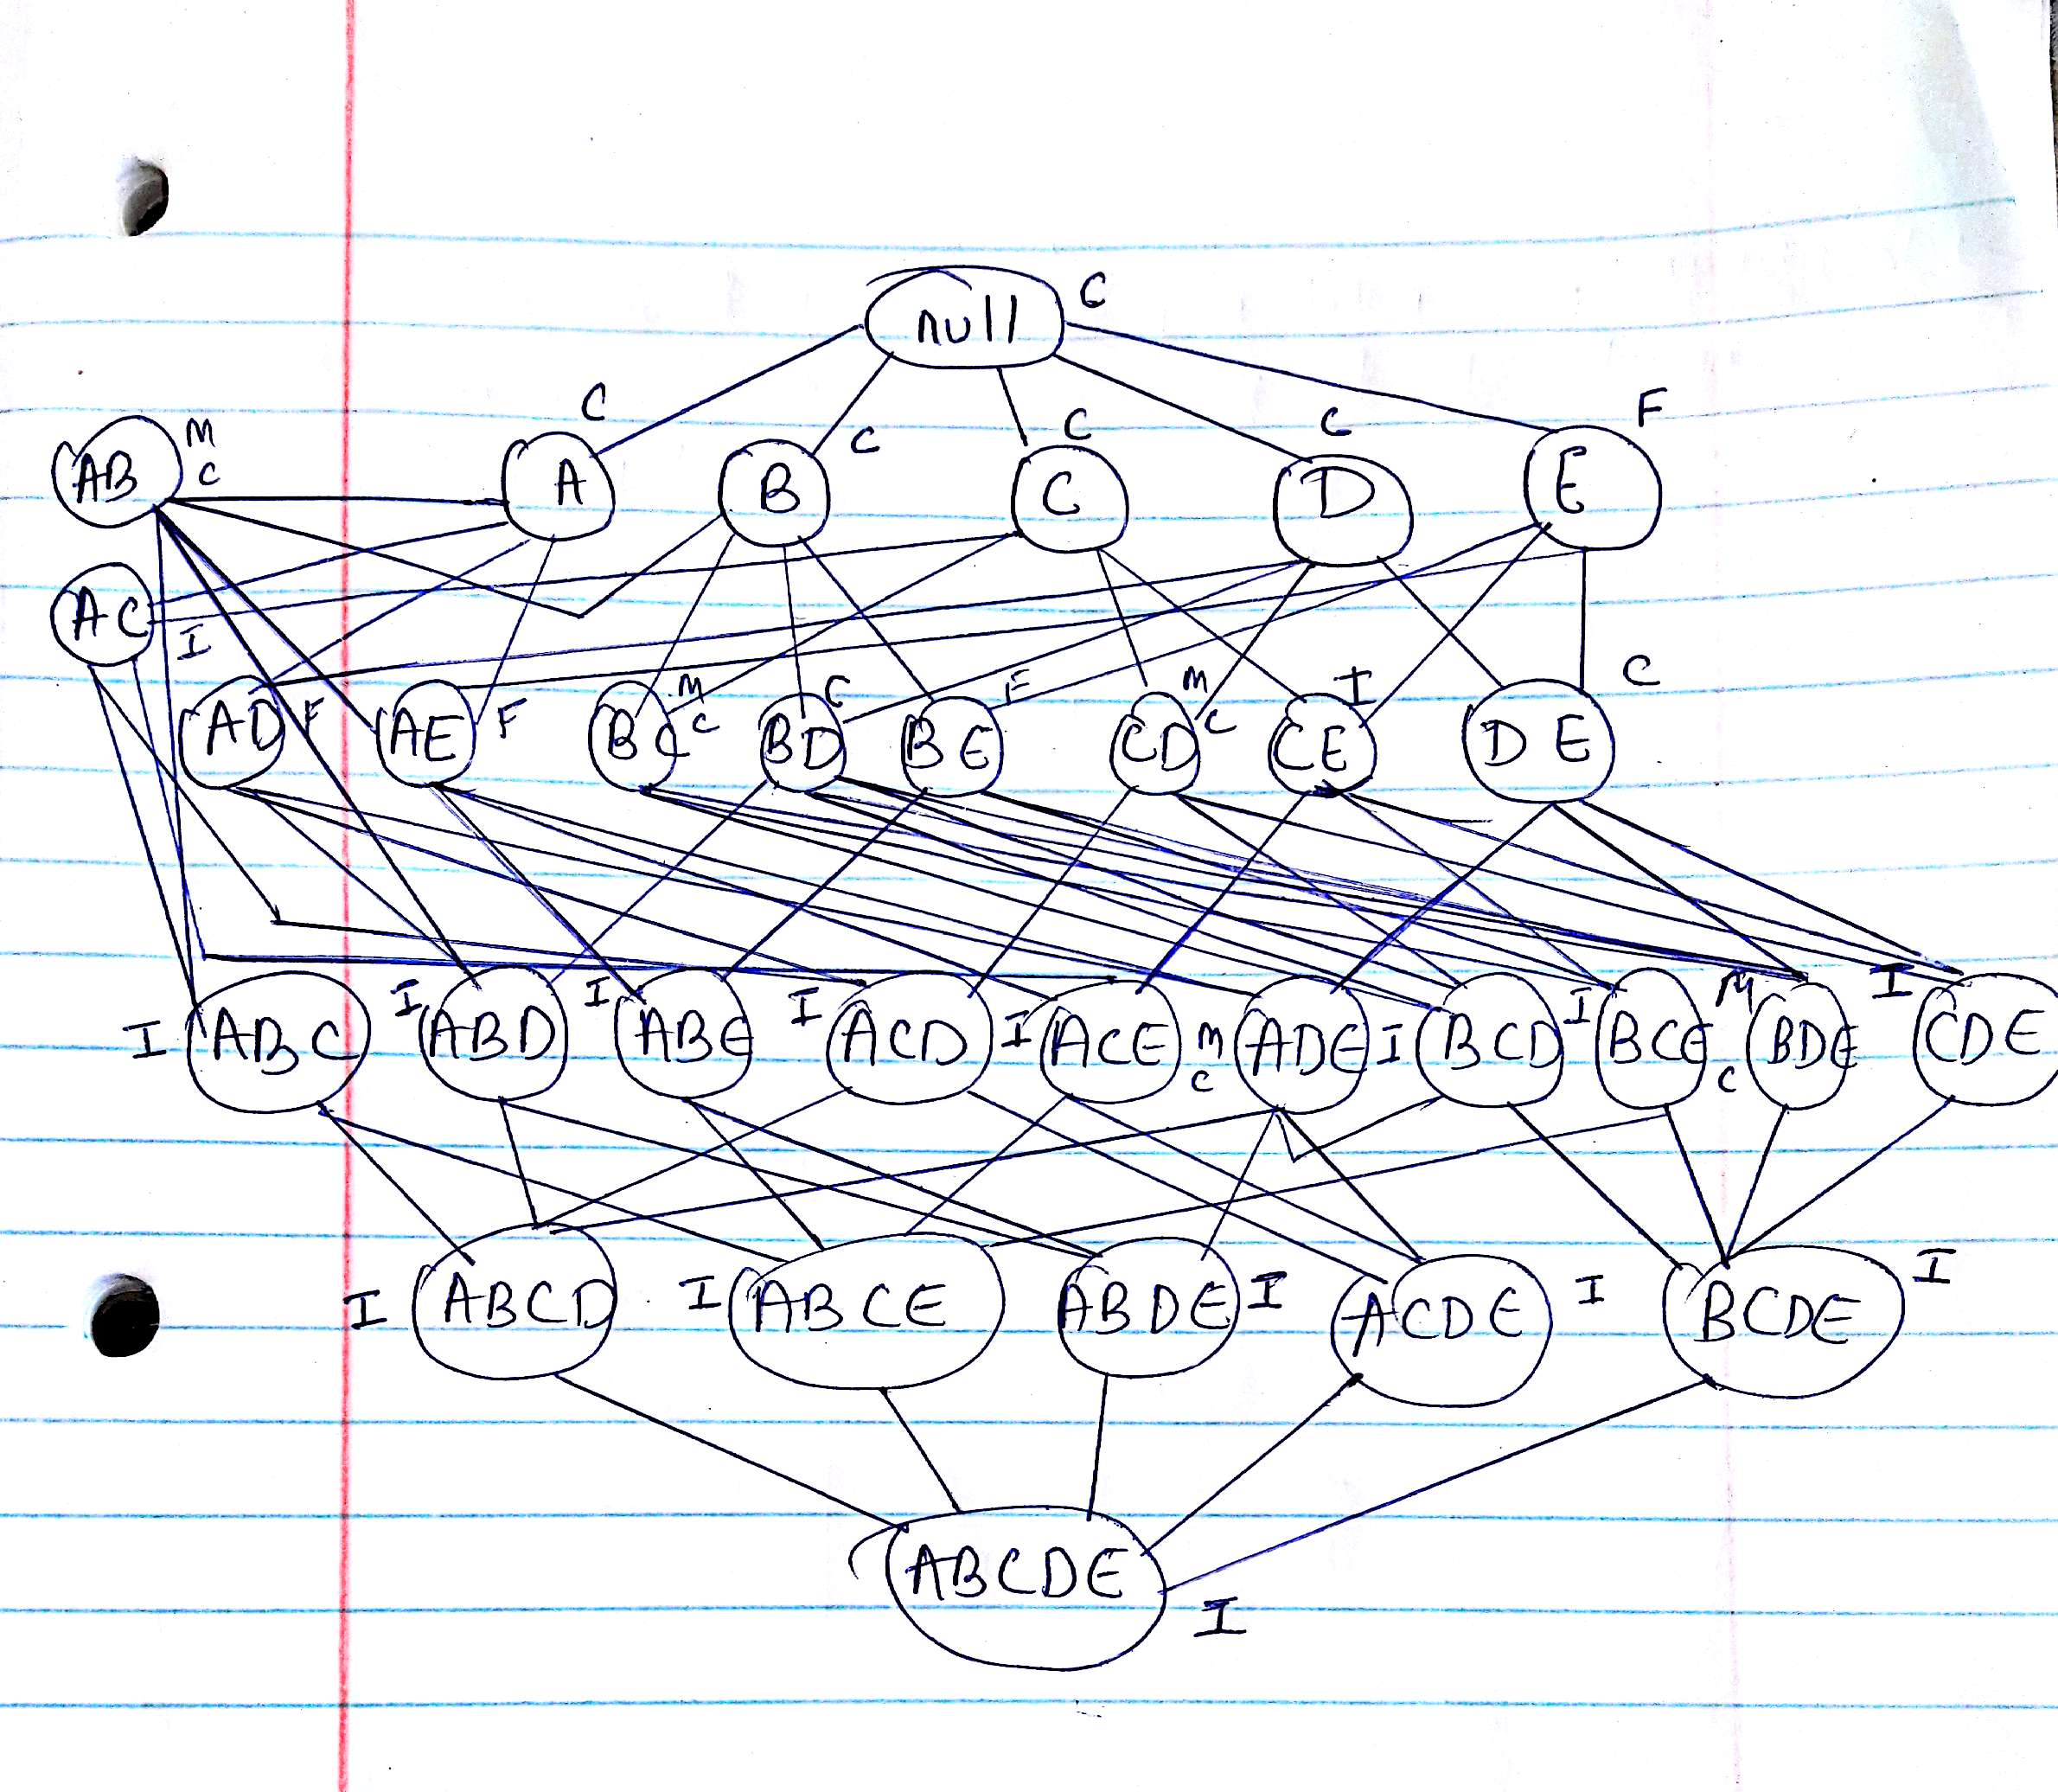 null C
C C C C F
AB M C A B C D E
AC I
M C F M C I C
AD F AE F BC BD BE CD CE DE
I ABC I ABD I ABE I ACD I ACE M C ADE I BCD I BCE M C BDE I CDE
I ABCD I ABCE ABDE I ACDE I BCDE I
ABCDE I